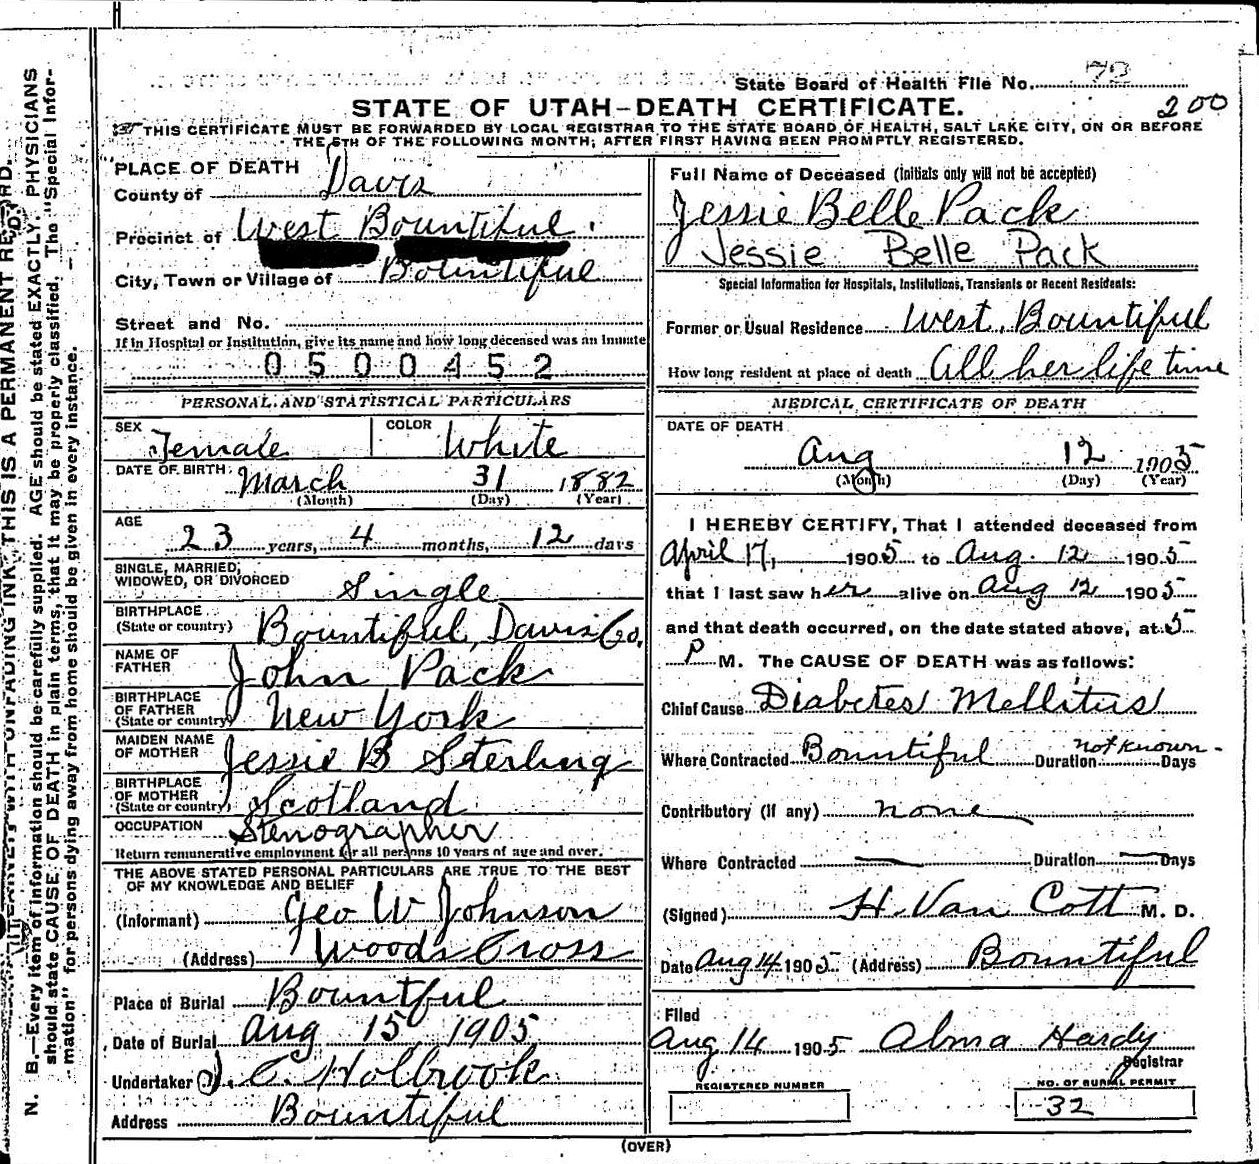 State Board of Health File No. 72
200
STATE OF UTAH—DEATH CERTIFICATE.
THIS CERTIFICATE MUST BE FORWARDED BY LOCAL REGISTRAR TO THE STATE BOARD OF HEALTH, SALT LAKE CITY, ON OR BEFORE
THE 5TH OF THE FOLLOWING MONTH; AFTER FIRST HAVING BEEN PROMPTLY REGISTERED.
N. B.—Every item of information should be carefully supplied. AGE should be stated EXACTLY. PHYSICIANS
should state CAUSE OF DEATH in plain terms, that it may be properly classified. The "Special Infor-
mation" for persons dying away from home should be given in every instance.
UNFADING INK, THIS IS A PERMANENT RECORD.
PLACE OF DEATH
County of Davis
Precinct of West Bountiful.
City, Town or Village of Bountiful
Street and No.
If in Hospital or Institution, give its name and how long deceased was an inmate
0500452
PERSONAL AND STATISTICAL PARTICULARS
SEX Female COLOR White
DATE OF BIRTH: March 31 1882
(Month) (Day) (Year)
AGE
23 years, 4 months, 12 days
SINGLE, MARRIED,
WIDOWED, OR DIVORCED Single
BIRTHPLACE
(State or country) Bountiful, Davis Co.
NAME OF
FATHER John Pack
BIRTHPLACE
OF FATHER
(State or country) New York
MAIDEN NAME
OF MOTHER Jessie B Sterling
BIRTHPLACE
OF MOTHER
(State or country) Scotland
OCCUPATION Stenographer
Return remunerative employment for all persons 10 years of age and over.
THE ABOVE STATED PERSONAL PARTICULARS ARE TRUE TO THE BEST
OF MY KNOWLEDGE AND BELIEF
(Informant) Geo W Johnson
(Address) Woods Cross
Place of Burial Bountful
Date of Burial Aug 15, 1905
Undertaker J. C. Holbrook
Address Bountiful
Full Name of Deceased (Initials only will not be accepted)
Jessie Belle Pack
Jessie Belle Pack
Special Information for Hospitals, Institutions, Transients or Recent Residents:
Former or Usual Residence West. Bountiful
How long resident at place of death All her life time
MEDICAL CERTIFICATE OF DEATH
DATE OF DEATH
Aug 12 1905
(Month) (Day) (Year)
I HEREBY CERTIFY, That I attended deceased from
April 17, 1905 to Aug. 12 1905
that I last saw her alive on Aug 12 1905
and that death occurred, on the date stated above, at 5
P M. The CAUSE OF DEATH was as follows:
Chief Cause Diabetes Mellitus
Where Contracted Bountiful Duration not known - Days
Contributory (if any) none
Where Contracted — Duration — Days
(Signed) H. Van Cott M. D.
Date Aug 14 1905 (Address) Bountiful
Filed
Aug 14 1905 Alma Hardy
Registrar
REGISTERED NUMBER
NO. OF BURIAL PERMIT
32
(OVER)